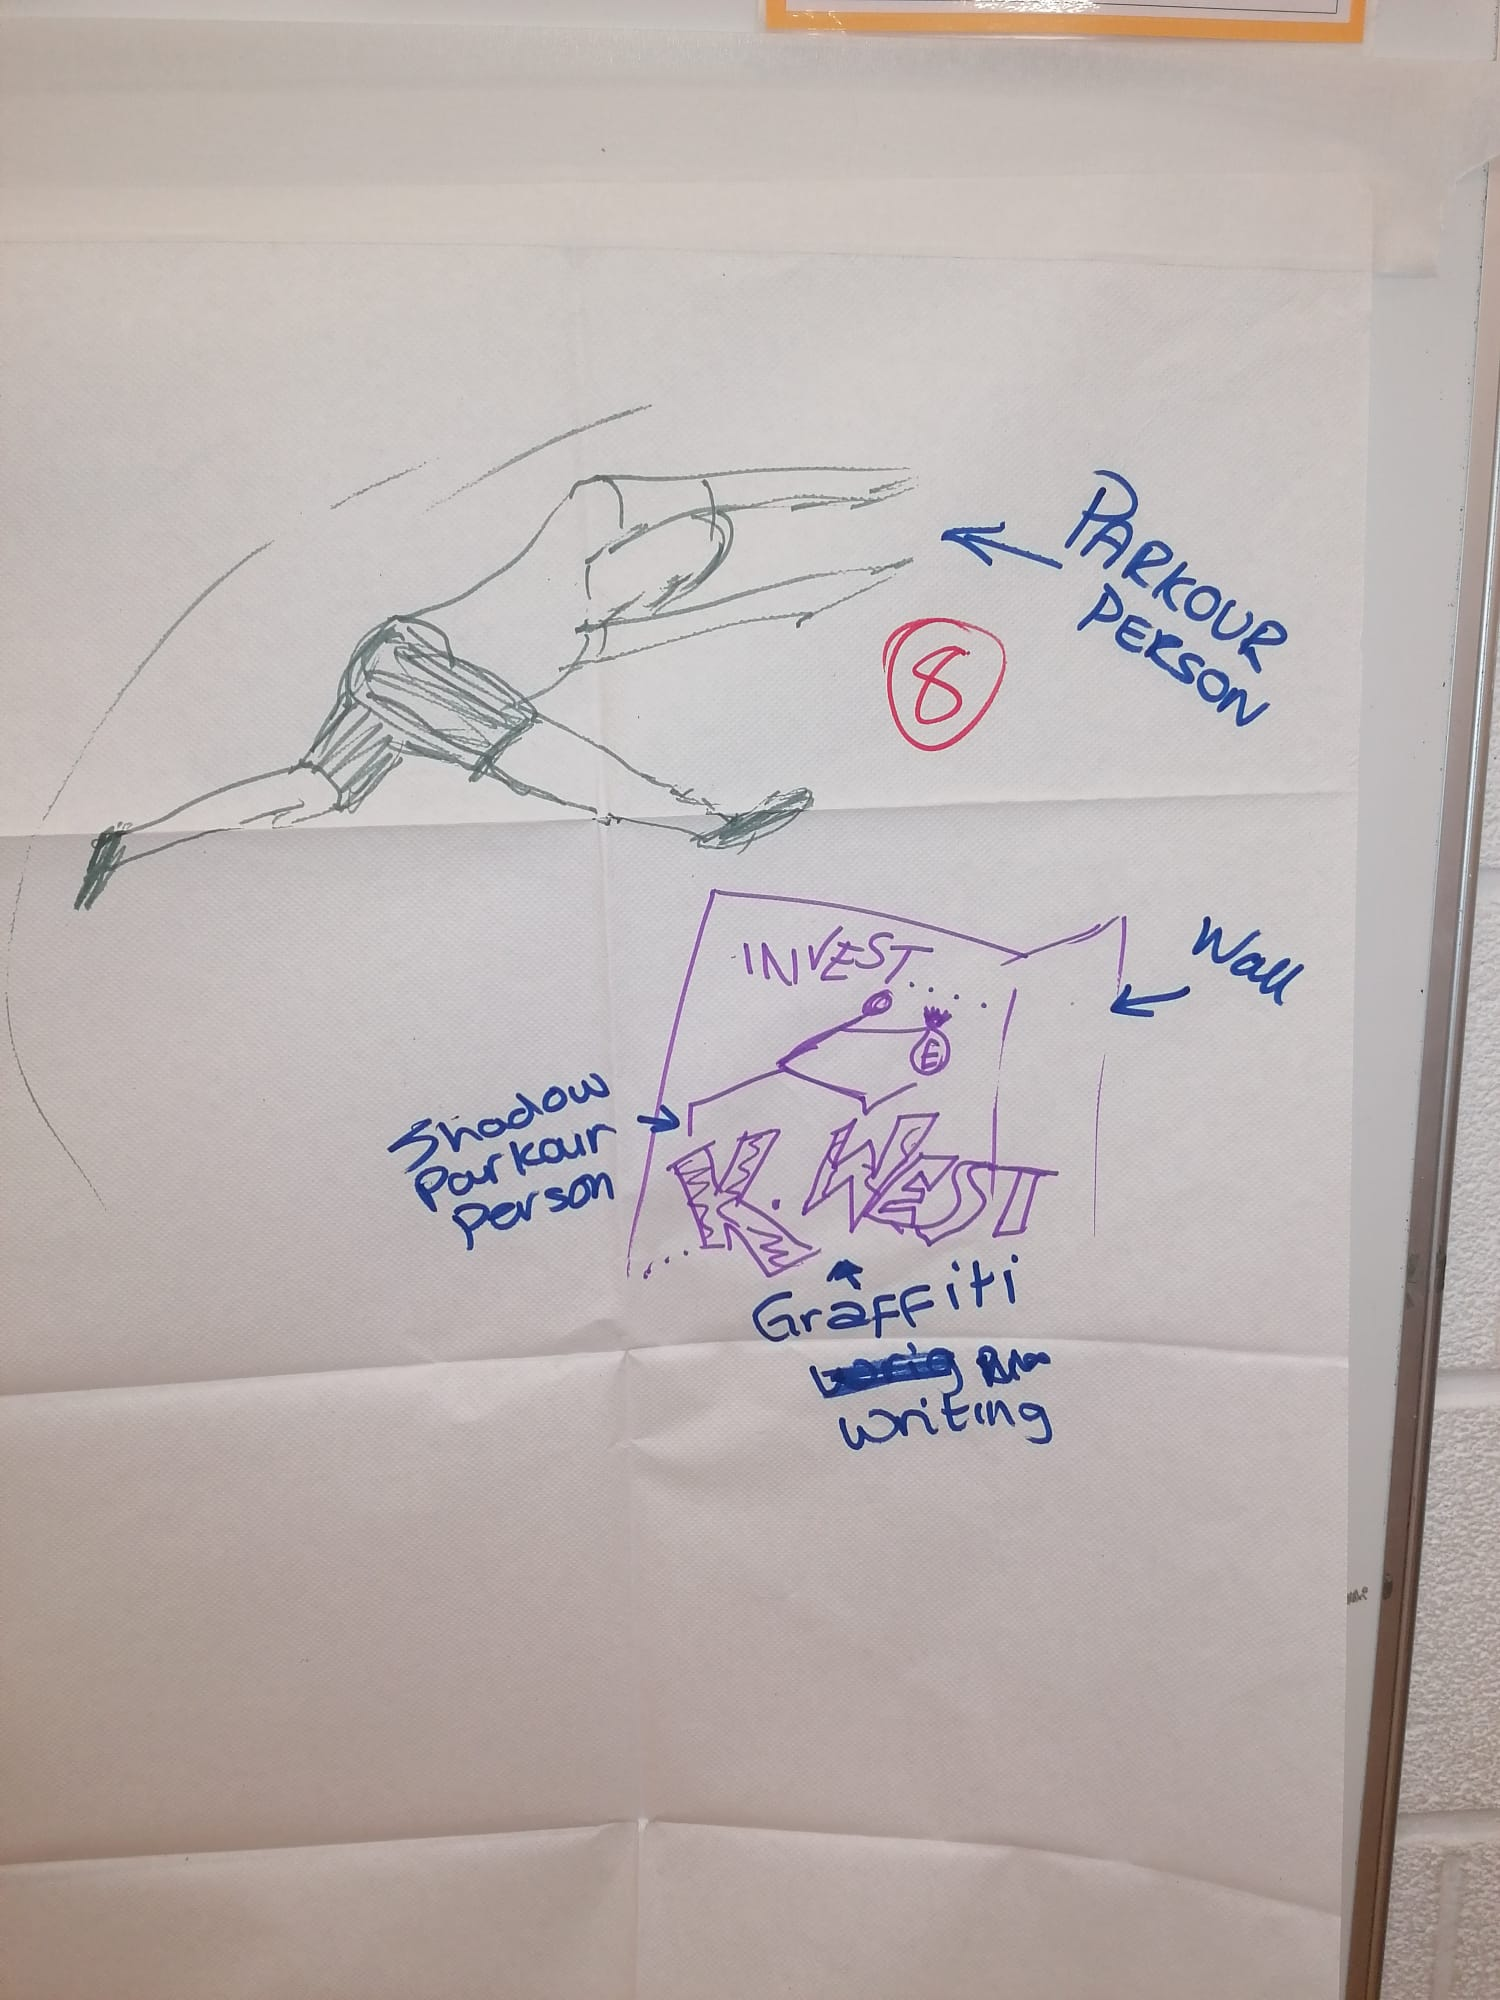 PARKOUR
PERSON
8
INVEST.....
Wall
E
Shadow
Parkour
Person
K. WEST
Graffiti
Writing